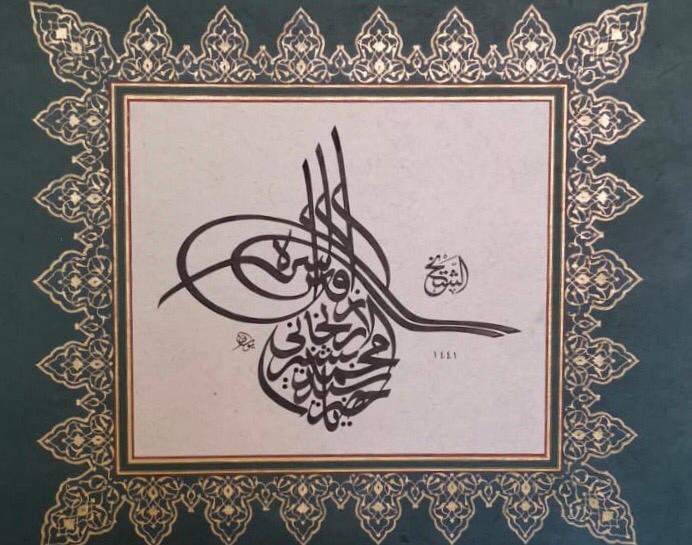 الشيخ
محمد بشير الارزنجاني قدس سره
١٤٤١